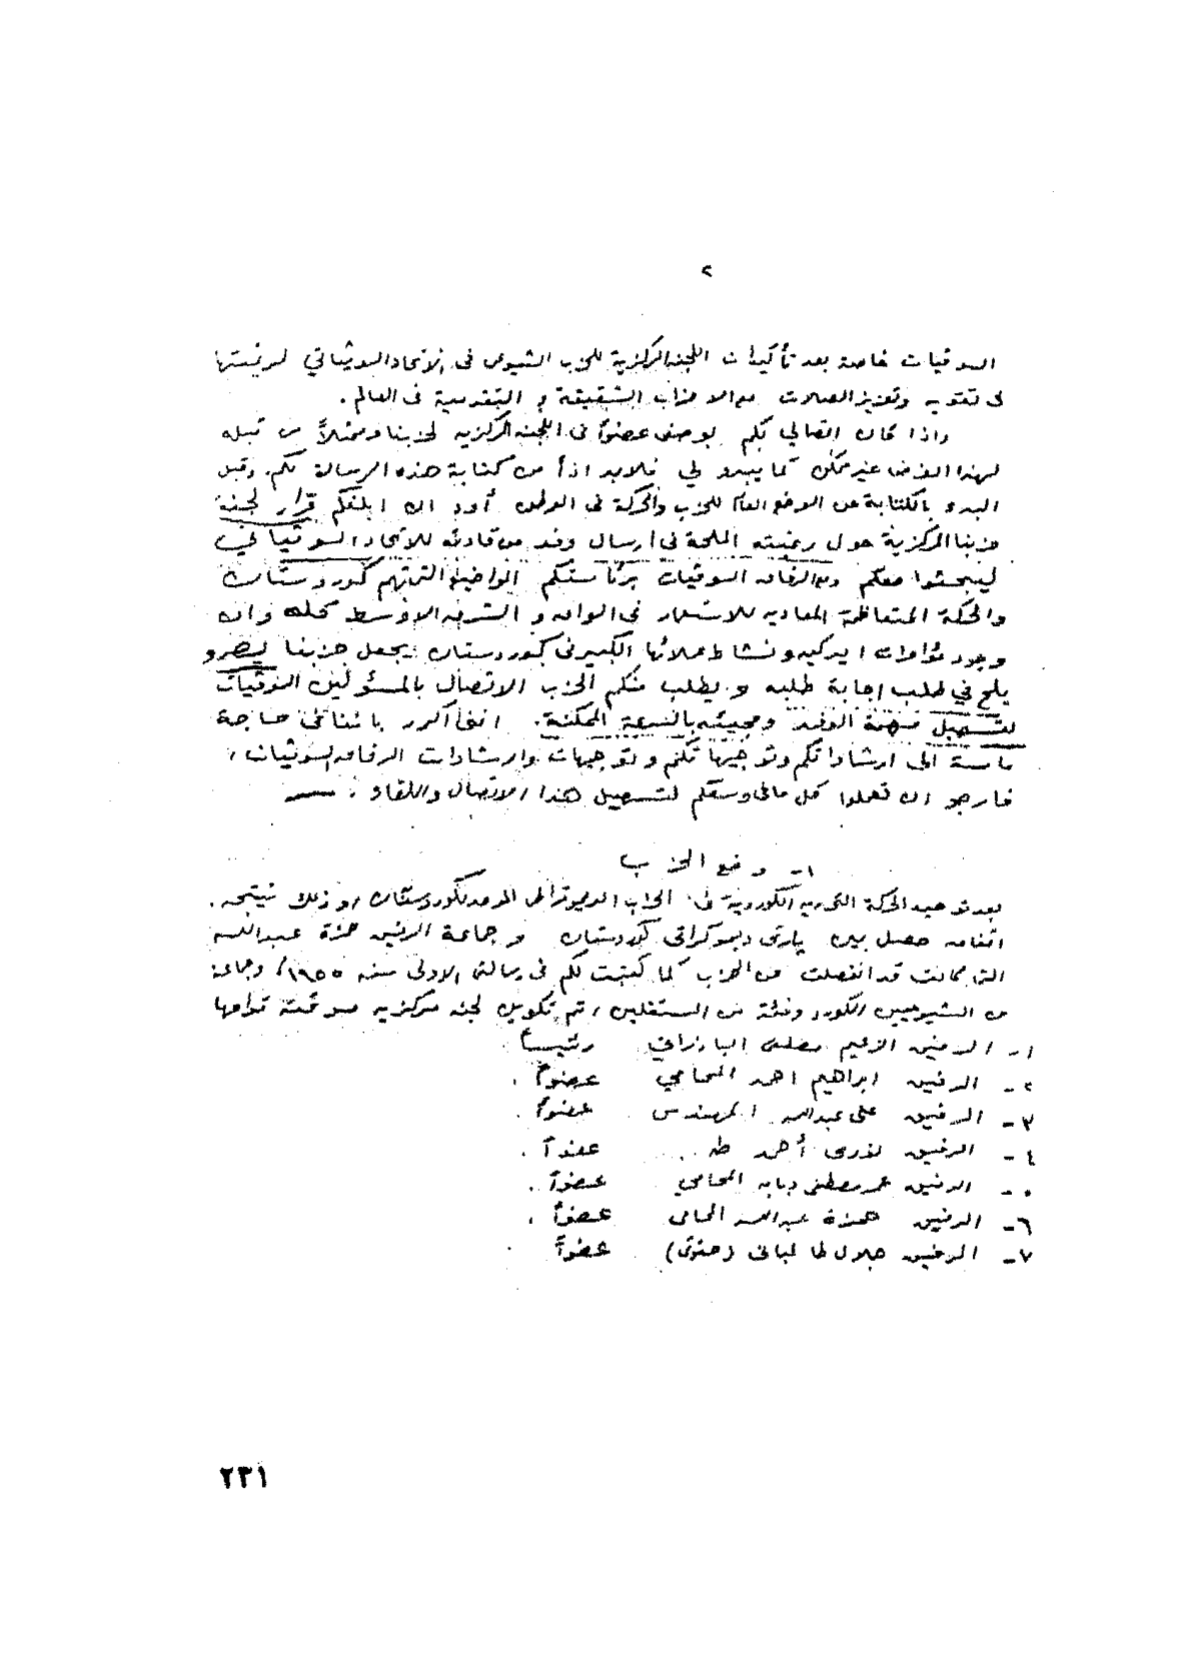 ٢
السوڤيات خاصة بعد تأكيدات اللجنة المركزية للحزب الشيوعي في الاتحاد السوڤياتي لرغبتها
في تقوية وتعزيز الصلات مع الاحزاب الشقيقة و التقدمية في العالم .
واذا كان اتصالي بكم بوصفي عضواً في اللجنة المركزية لحزبنا وممثلاً من قبله
لهذا الغرض غير ممكن كما يبدو لي فلابد اذاً من كتابة هذه الرسالة لكم. وقبل
البدء بالكتابة عن الوضع العام للحزب والحركة في الوطن أود ان ابلغكم قرار لجنة
حزبنا المركزية حول رغبته الملحة في ارسال وفد من قادته للاتحاد السوڤياتي
ليبحثوا معكم ومع الرفاق السوڤيات برئاستكم المواضيع التي تهم كوردستان
والحركة المتعاظمة المعادية للاستعمار في العراق و الشرق الاوسط كله وان
وجود مؤامرات اميركية ونشاط عملائها الكبير في كوردستان يجعل حزبنا ليصر و
يلح في طلب إجابة طلبه و يطلب منكم الحزب الاتصال بالمسؤلين السوڤيات
لتسهيل مهمة الوفد ومجيئه بالسرعة الممكنة. انني أكرر باننا في حاجة
ماسة الى ارشاداتكم وتوجيهاتكم و توجيهات وارشادات الرفاق السوڤيات ،
فارجو ان تعملوا كل ما في وسعكم لتسهيل هذا الاتصال واللقاء .
١- وضع الحزب
بعد توحيد الحركة التحررية الكوردية في الحزب الديموقراطي الموحد لكوردستان ، وذلك نتيجة
اتفاق حصل بين پارتي ديموكراتي كوردستان و جماعة الرئيس حمزة عبدالله
التي كانت قد انفصلت من الحزب كما كتبت لكم في رسالتي الاولى سنة ١٩٥٥ / وجماعة
من الشيوعيين الكورد وفئة من المستقلين ، تم تكوين لجنة مركزية موقتة قوامها
١- الرفيق الزعيم مصطفى البارزاني رئيساً .
٢- الرفيق ابراهيم احمد المحامي عضواً .
٣- الرفيق علي عبدالله المهندس عضواً .
٤- الرفيق نوري أحمد طه عضواً .
٥- الرفيق عمر مصطفى دبابه المحامي عضواً .
٦- الرفيق حمزة عبدالله المحامي عضواً .
٧- الرفيق جلال طالباني (حقوقي) عضواً .
٢٣١